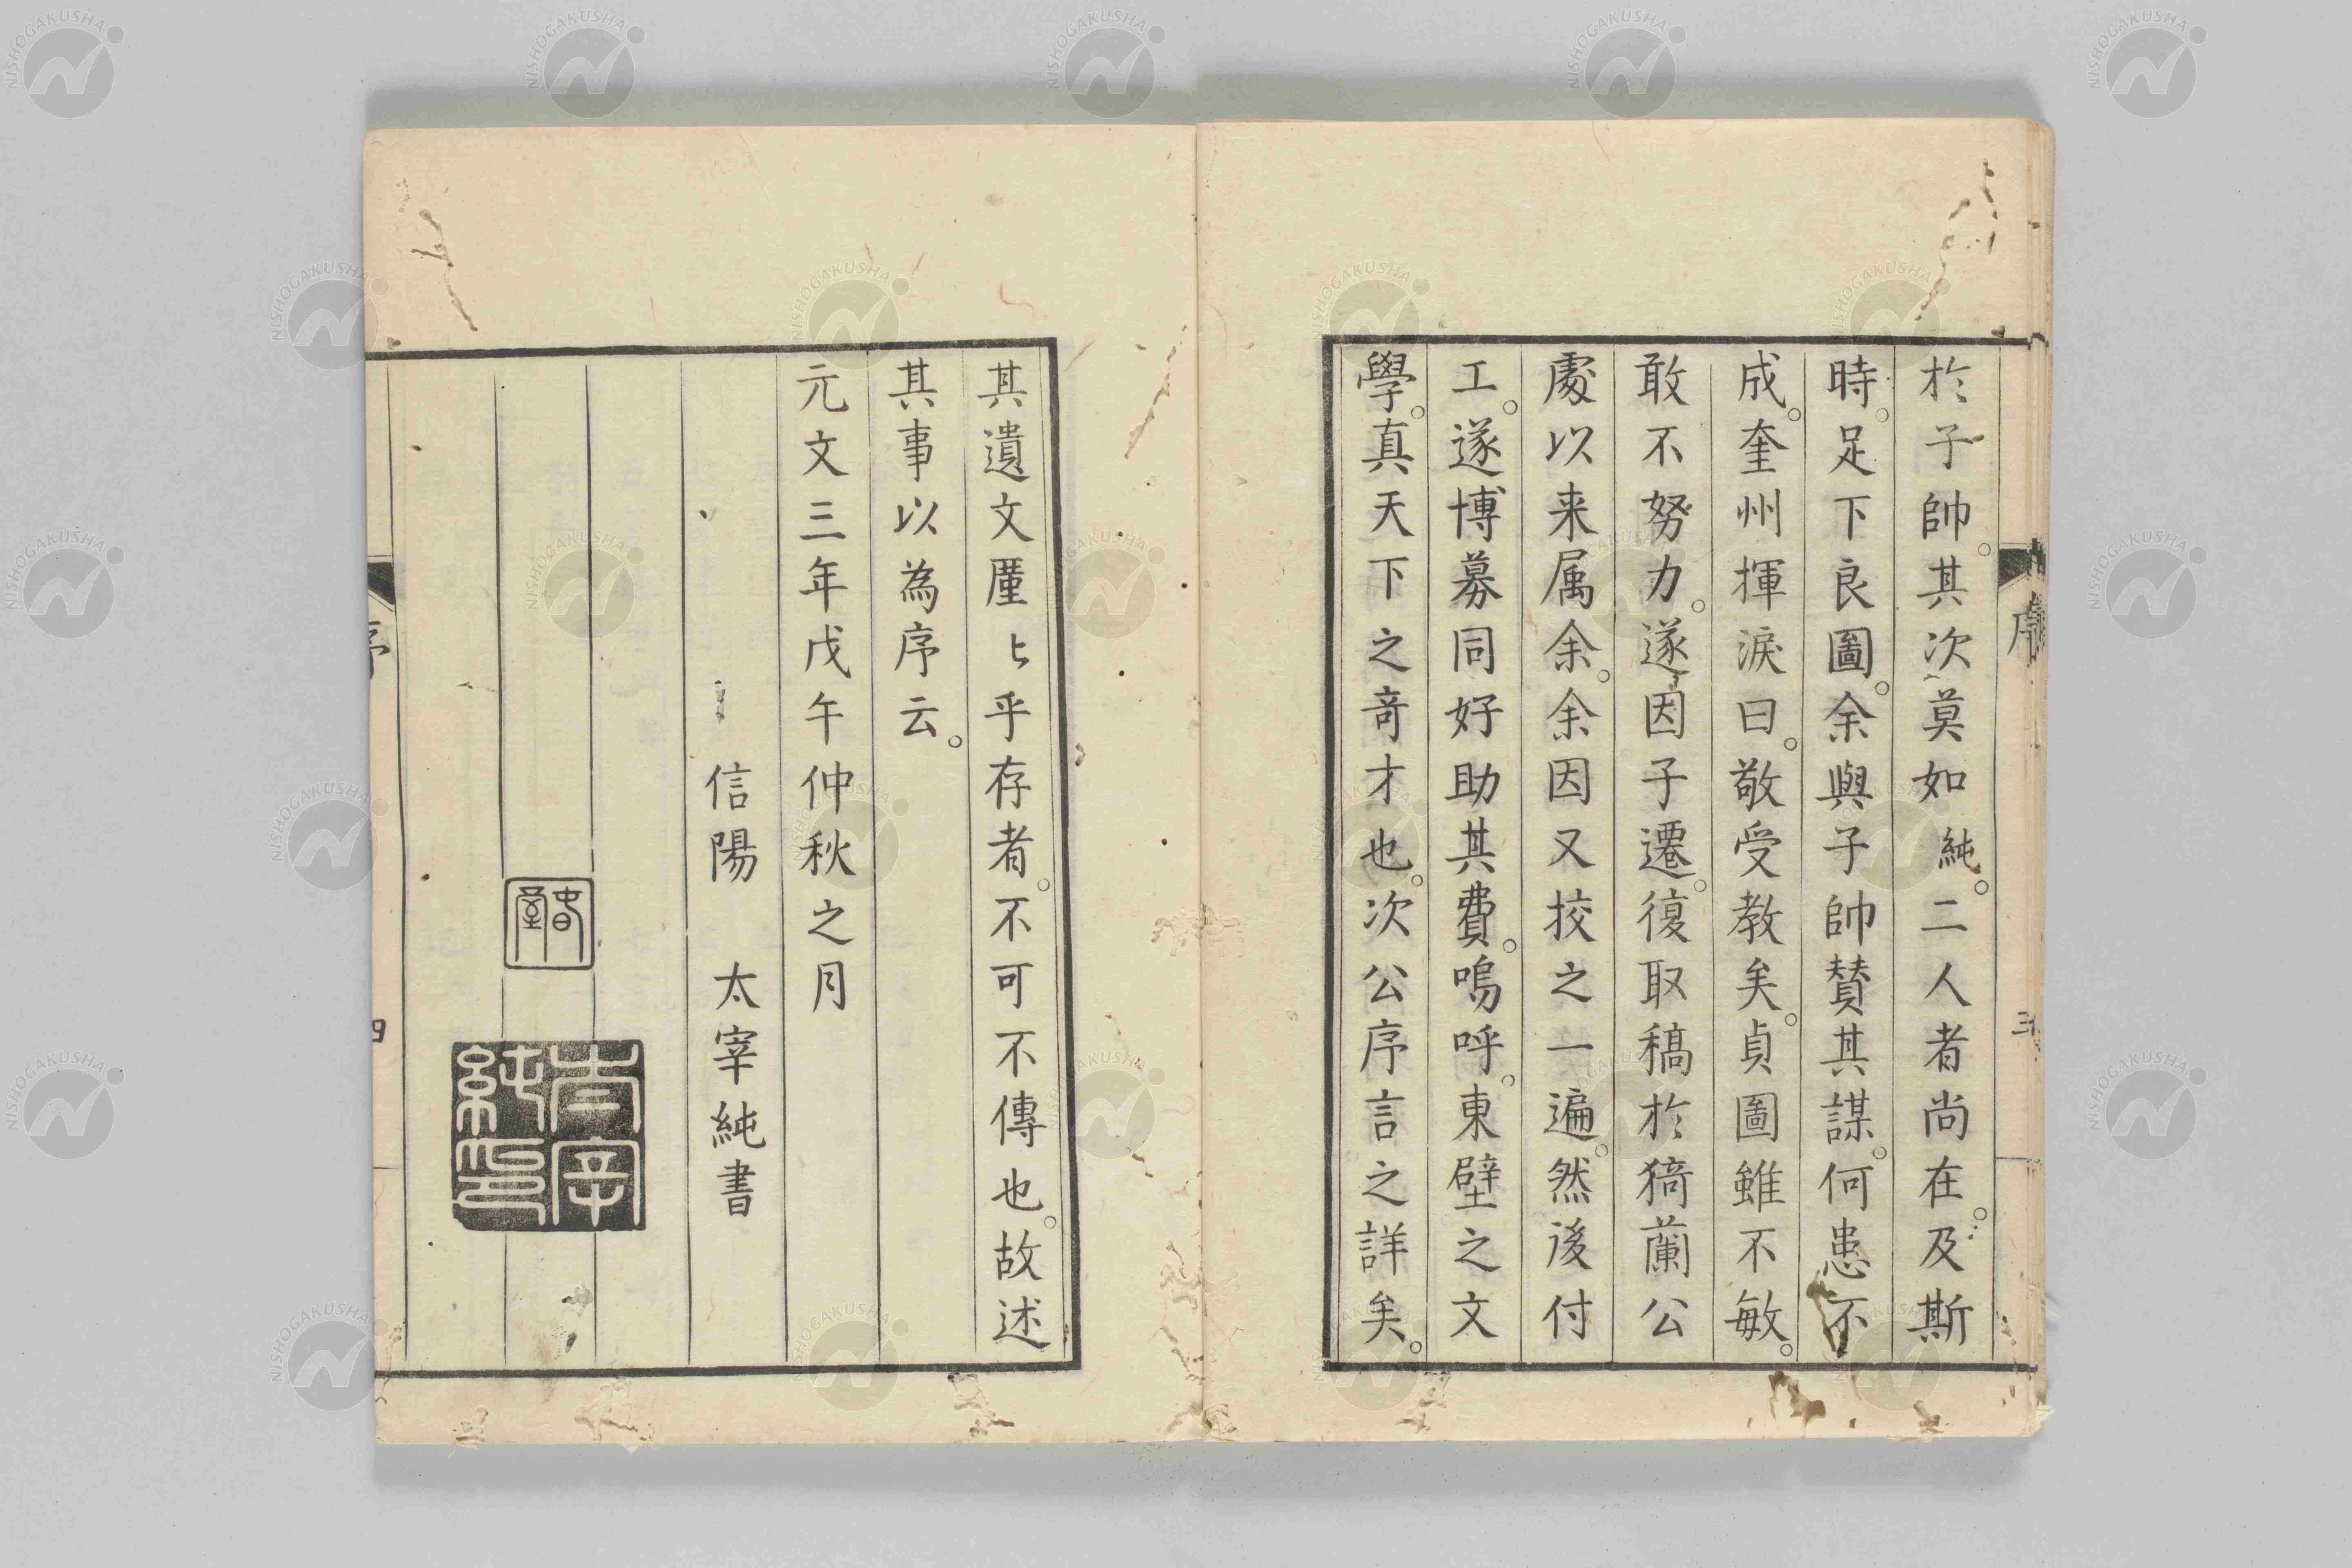 於子帥。其次莫如純。二人者尚在。及斯
時。足下良圖。余與子帥賛其謀。何患不
成。奎州揮淚曰。敬受教矣。貞圖雖不敏。
敢不努力。遂因子遷。復取稿於猗蘭公
處以来属余。余因又挍之一遍。然後付
工。遂博募同好助其費。嗚呼。東壁之文
學。真天下之竒才也。次公序言之詳矣。
序
三
其遺文厪〻乎存者。不可不傳也。故述
其事以為序云。
元文三年戊午仲秋之月
信陽 太宰純書
春臺
太宰純印
序
四
NISHOGAKUSHA